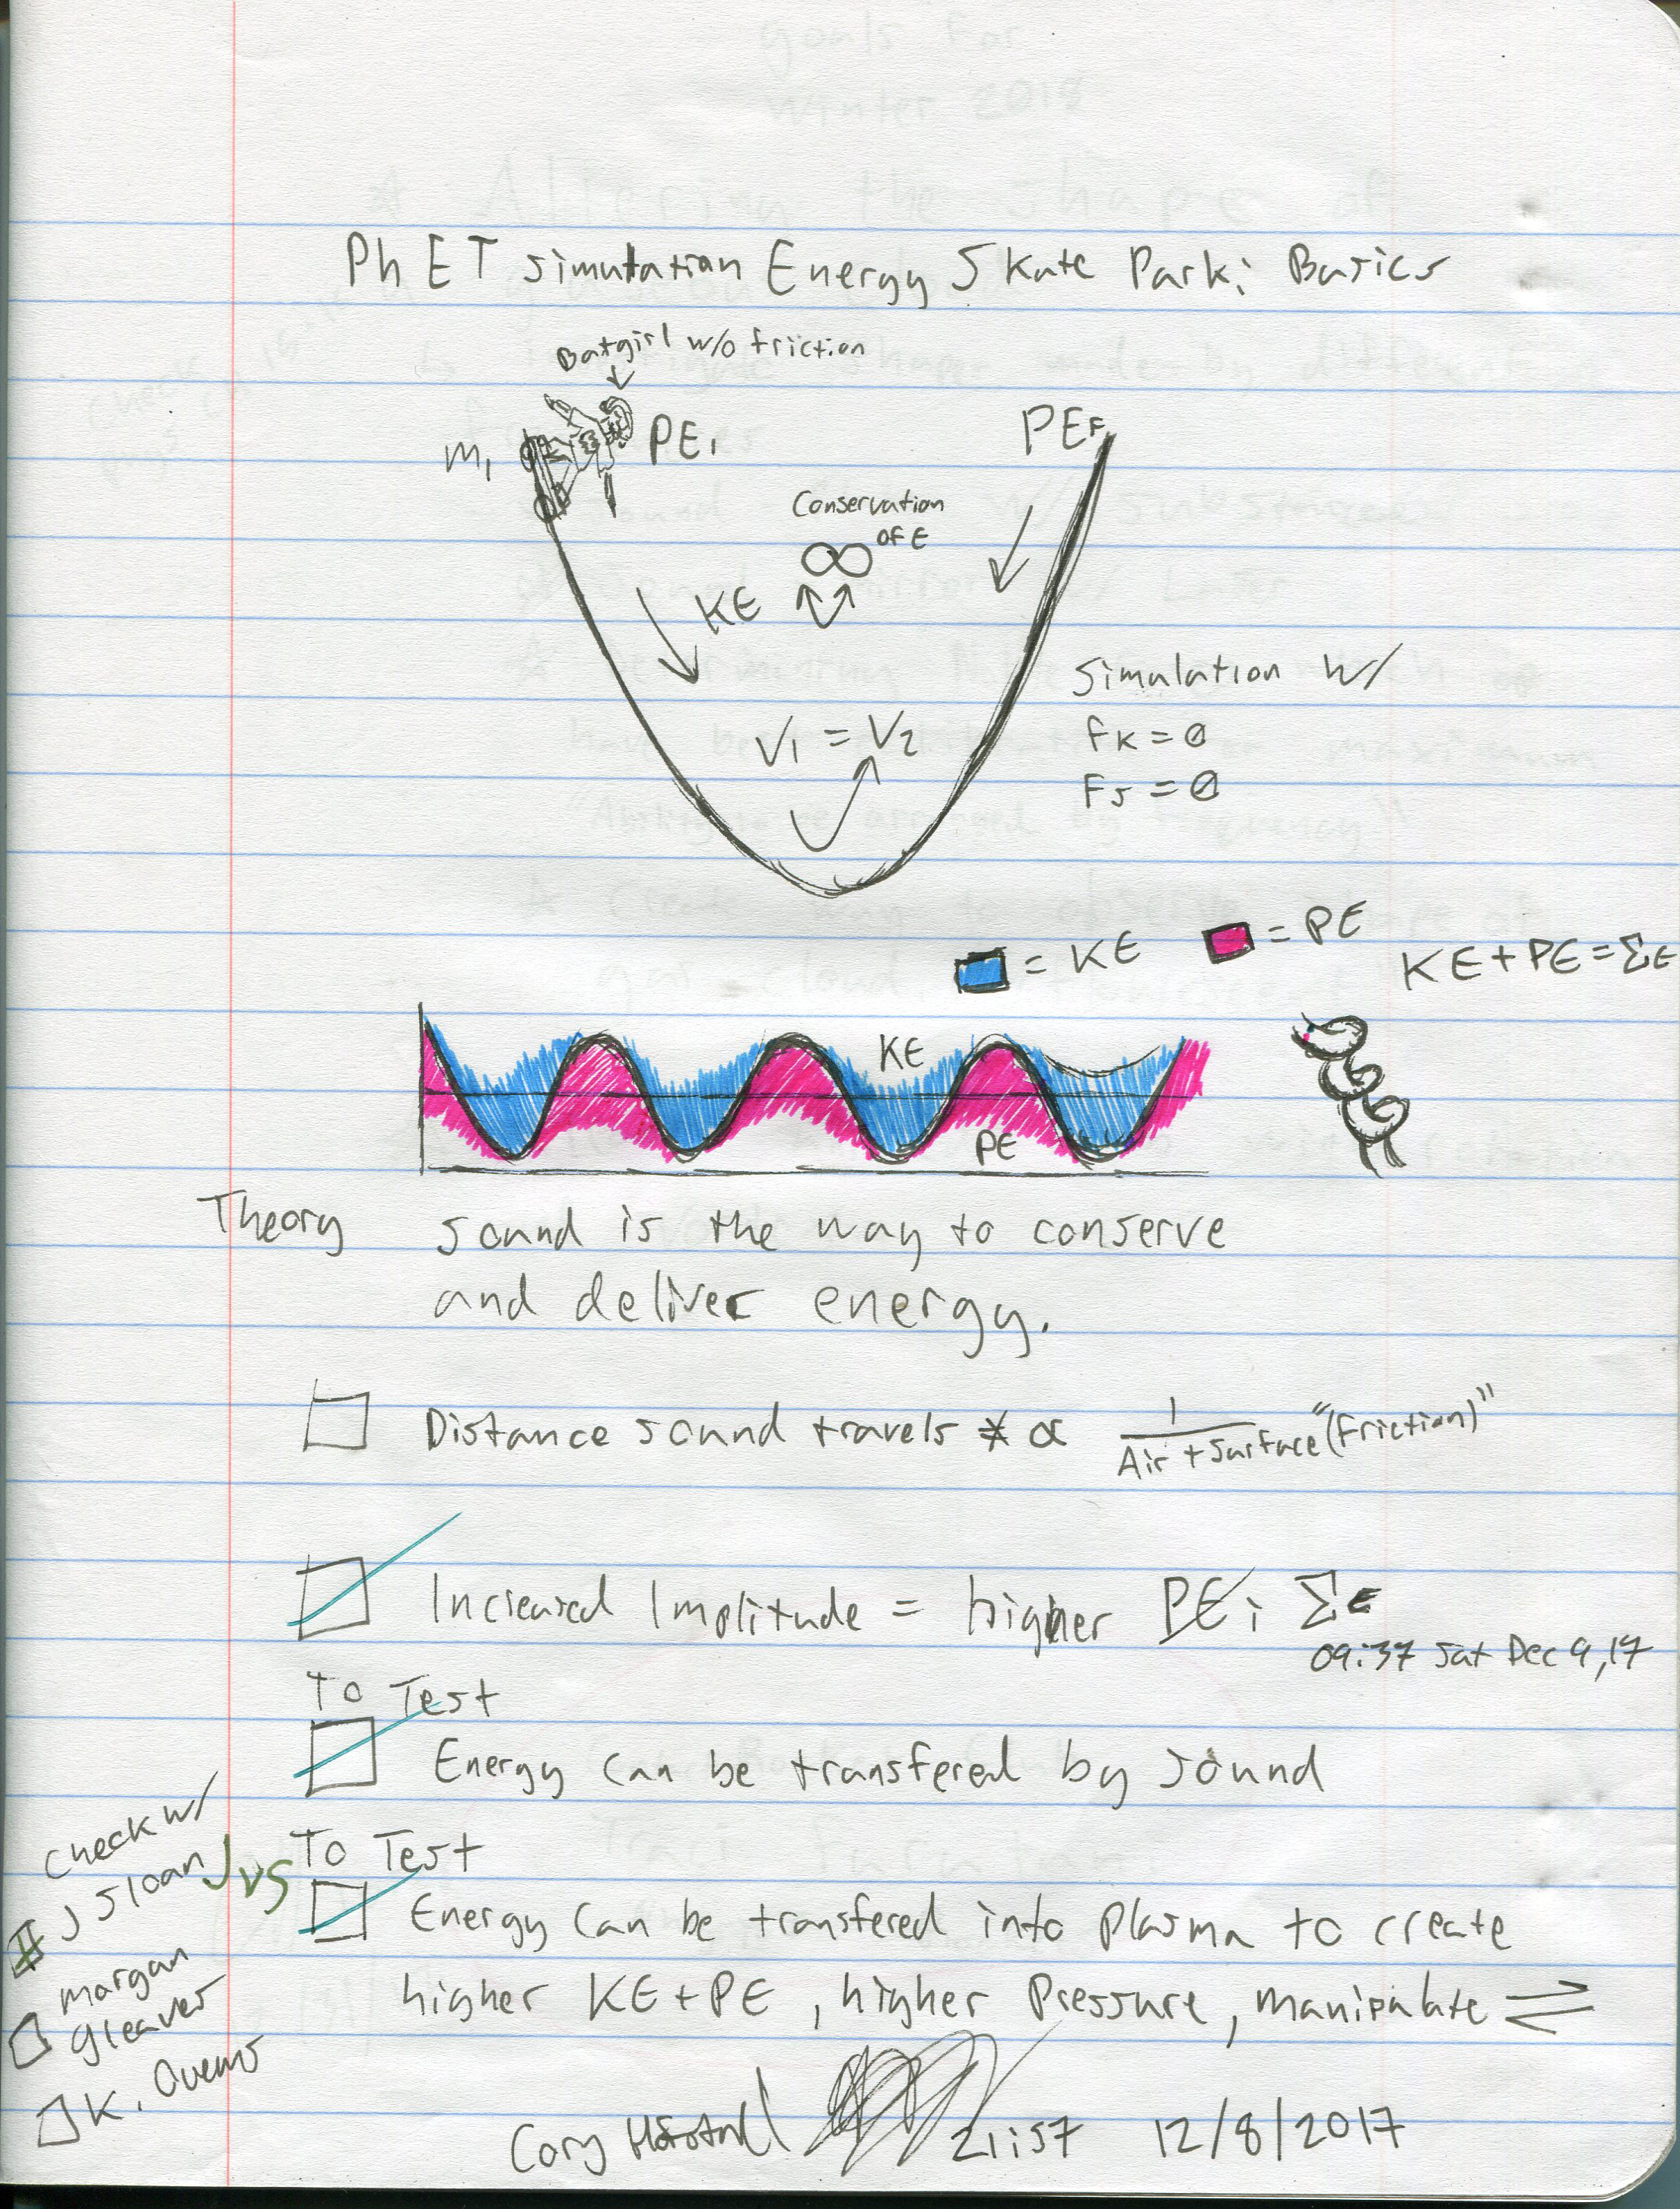 PhET simulation Energy Skate Park: Basics
Batgirl w/o friction
m₁
PE₁
PEF
Conservation
of E
∞
KE
V₁ = V₂
Simulation w/
fK = 0
Fs = 0
= KE
= PE
KE + PE = ΣE
KE
PE
Theory
sound is the way to conserve
and deliver energy.
Distance sound travels ∝ 1 / Air + surface "(friction)"
Increased Implitude = higher PEi ΣE
09:37 Sat Dec 9, 17
To Test
Energy can be transfered by sound
To Test
Energy can be transfered into plasma to create
higher KE + PE, higher pressure, manipulate ⇌
Check w/
J Sloan JVS
Morgan
gleaver
K.
Cory
21:57 12/8/2017